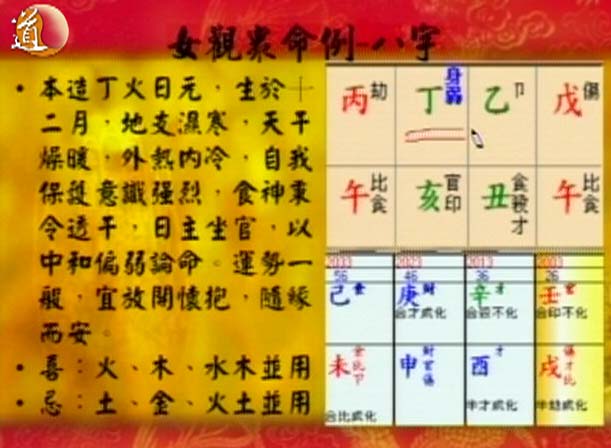 道
女觀眾命例-八字
• 本造丁火日元，生於十
二月，地支濕寒，天干
燥暖，外熱內冷，自我
保護意識強烈，食神秉
令透干，日主坐官，以
中和偏弱論命。運勢一
般，宜放開懷抱，隨緣
而安。
• 喜：火、木、水木並用
• 忌：土、金、火土並用
丙 劫 丁 身弱 乙 卩 戊 傷
午 比食 亥 官印 丑 食殺才 午 比食
2033 2023 2013 2003
56 46 36 26
己 食 庚 財 辛 才 壬 官
合才成化 合殺不化 合印不化
未 食比卩 申 財官傷 酉 才 戌 傷才比
合比成化 半才成化 半劫成化